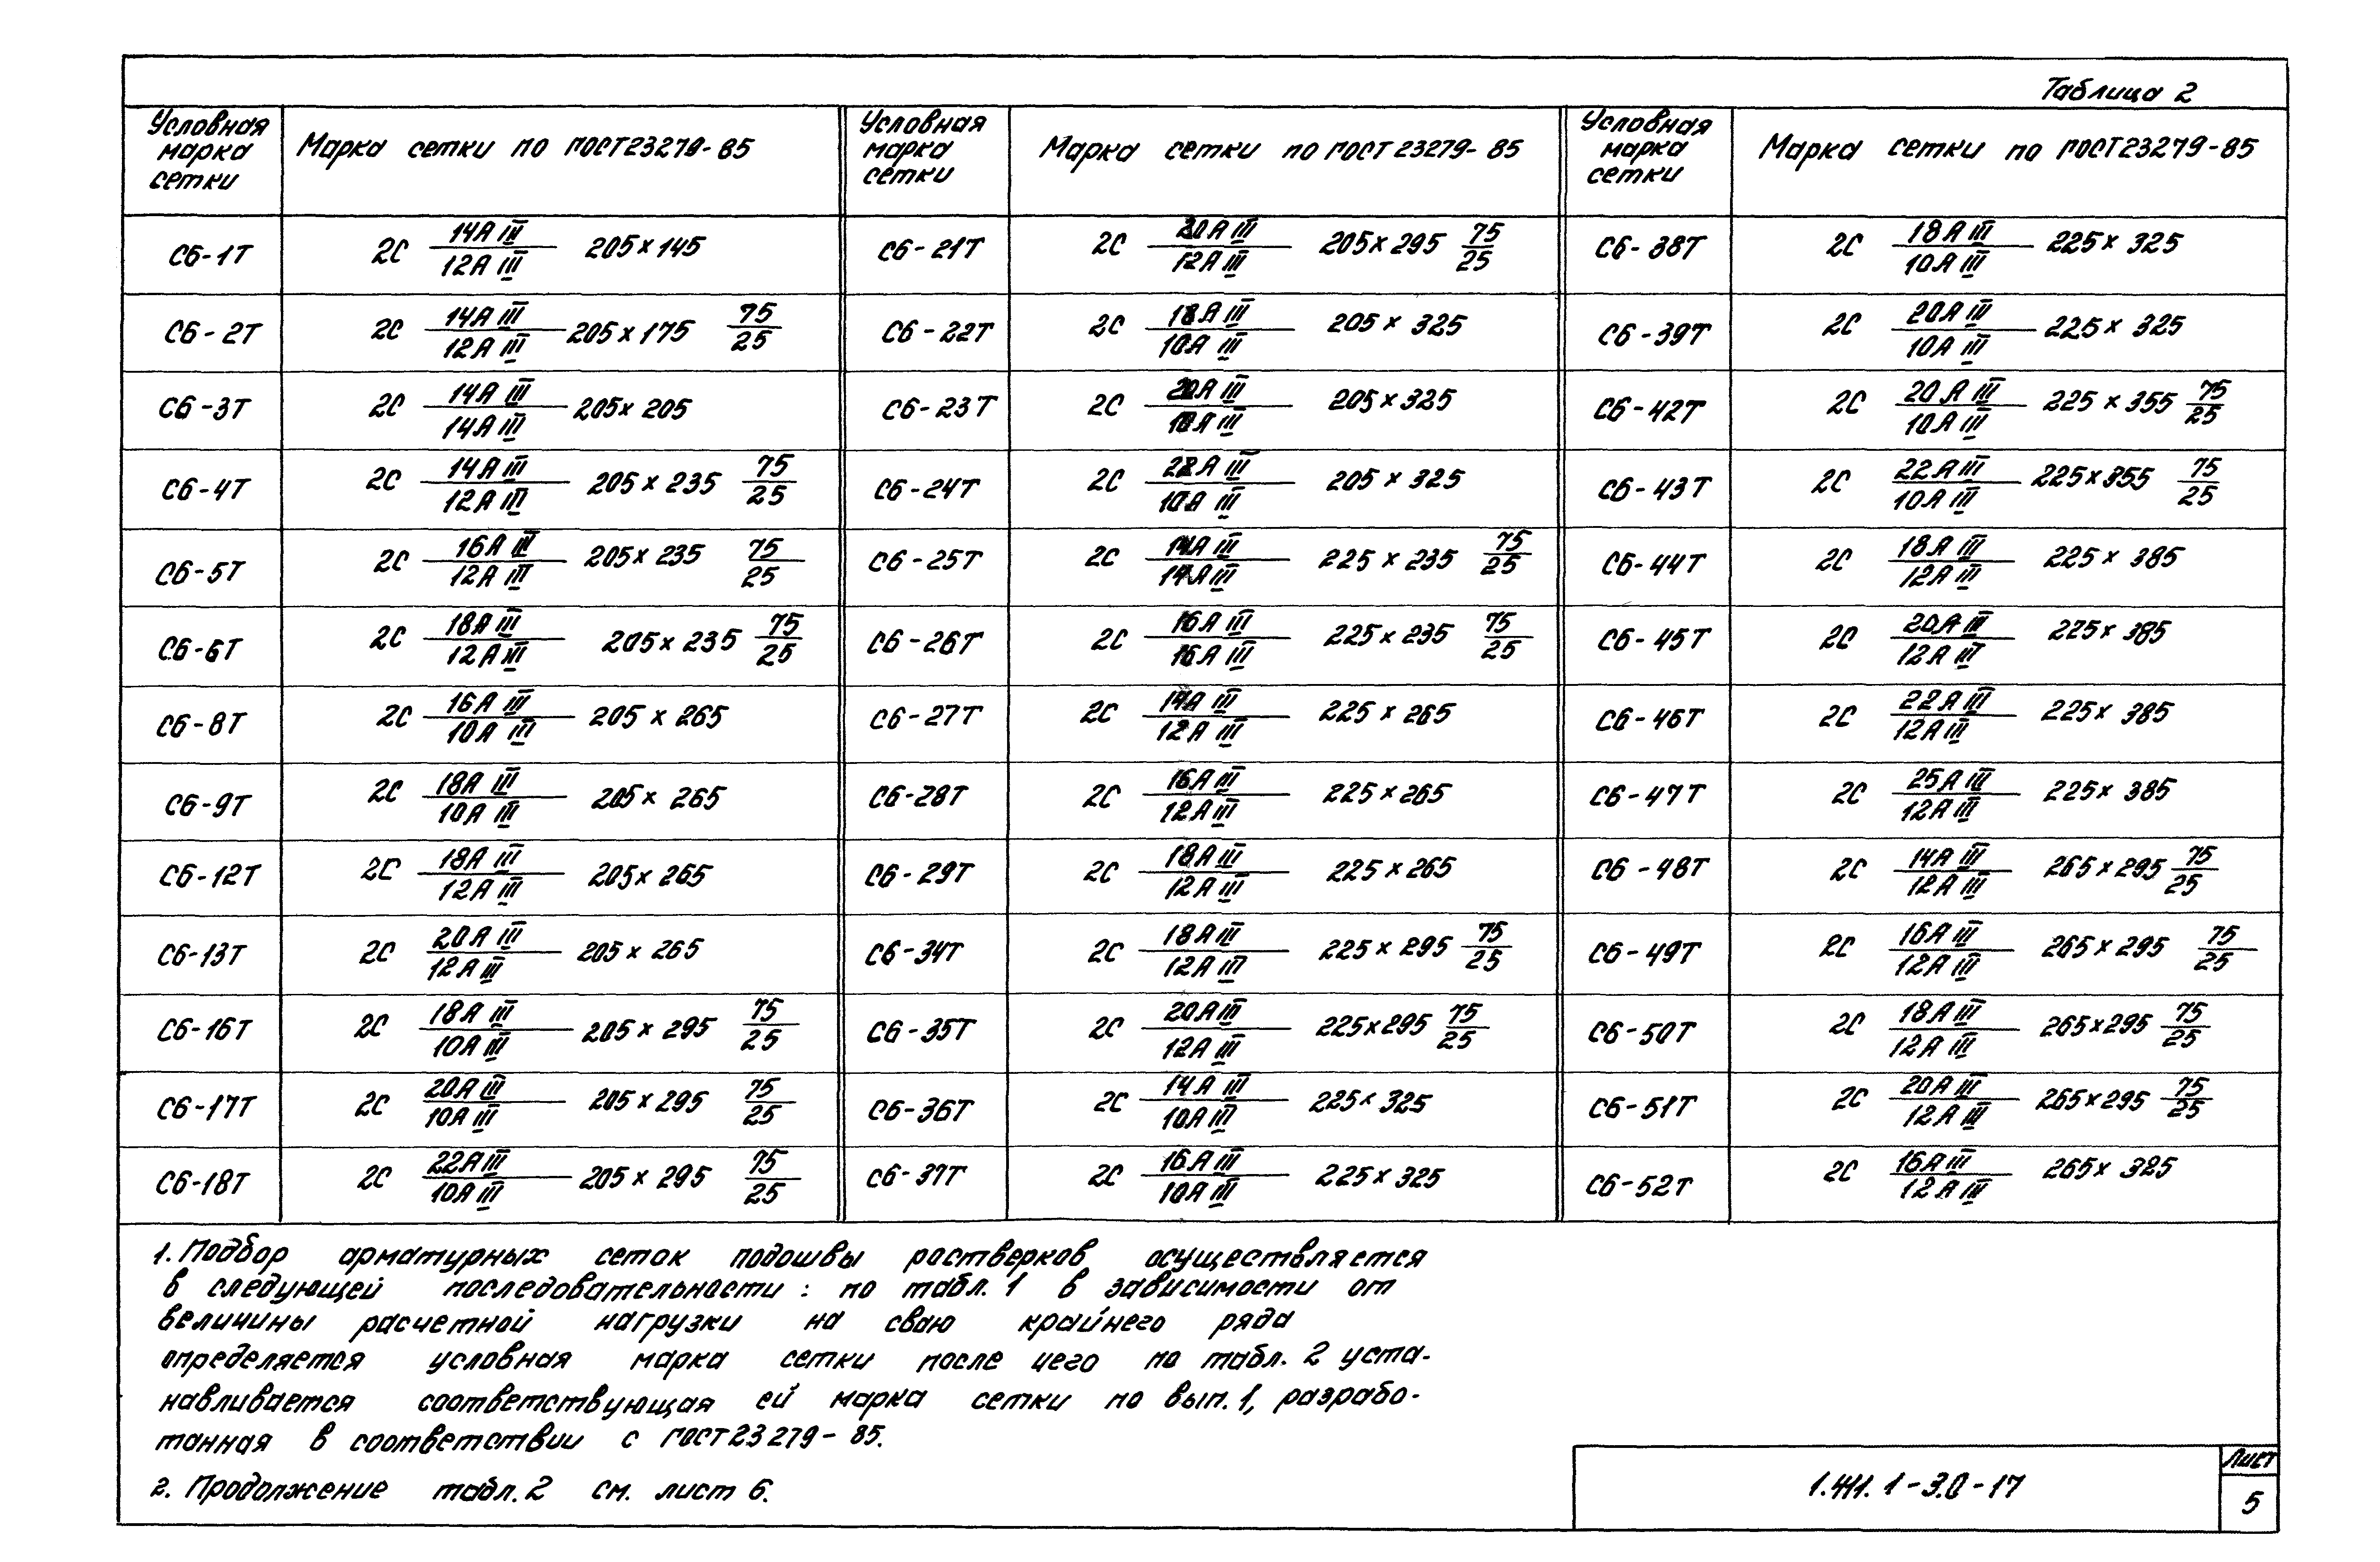 Таблица 2
Условная марка сетки | Марка сетки по ГОСТ 23279-85 | Условная марка сетки | Марка сетки по ГОСТ 23279-85 | Условная марка сетки | Марка сетки по ГОСТ 23279-85
С6-1Т | 2С 14АIII/12АIII 205×145 | С6-21Т | 2С 20АIII/12АIII 205×295 75/25 | С6-38Т | 2С 18АIII/10АIII 225×325
С6-2Т | 2С 14АIII/12АIII 205×175 75/25 | С6-22Т | 2С 18АIII/10АIII 205×325 | С6-39Т | 2С 20АIII/10АIII 225×325
С6-3Т | 2С 14АIII/14АIII 205×205 | С6-23Т | 2С 20АIII/10АIII 205×325 | С6-42Т | 2С 20АIII/10АIII 225×355 75/25
С6-4Т | 2С 14АIII/12АIII 205×235 75/25 | С6-24Т | 2С 22АIII/10АIII 205×325 | С6-43Т | 2С 22АIII/10АIII 225×355 75/25
С6-5Т | 2С 16АIII/12АIII 205×235 75/25 | С6-25Т | 2С 14АIII/14АIII 225×235 75/25 | С6-44Т | 2С 18АIII/12АIII 225×385
С6-6Т | 2С 18АIII/12АIII 205×235 75/25 | С6-26Т | 2С 16АIII/16АIII 225×235 75/25 | С6-45Т | 2С 20АIII/12АIII 225×385
С6-8Т | 2С 16АIII/10АIII 205×265 | С6-27Т | 2С 14АIII/12АIII 225×265 | С6-46Т | 2С 22АIII/12АIII 225×385
С6-9Т | 2С 18АIII/10АIII 205×265 | С6-28Т | 2С 16АIII/12АIII 225×265 | С6-47Т | 2С 25АIII/12АIII 225×385
С6-12Т | 2С 18АIII/12АIII 205×265 | С6-29Т | 2С 18АIII/12АIII 225×265 | С6-48Т | 2С 14АIII/12АIII 265×295 75/25
С6-13Т | 2С 20АIII/12АIII 205×265 | С6-34Т | 2С 18АIII/12АIII 225×295 75/25 | С6-49Т | 2С 16АIII/12АIII 265×295 75/25
С6-16Т | 2С 18АIII/10АIII 205×295 75/25 | С6-35Т | 2С 20АIII/12АIII 225×295 75/25 | С6-50Т | 2С 18АIII/12АIII 265×295 75/25
С6-17Т | 2С 20АIII/10АIII 205×295 75/25 | С6-36Т | 2С 14АIII/10АIII 225×325 | С6-51Т | 2С 20АIII/12АIII 265×295 75/25
С6-18Т | 2С 22АIII/10АIII 205×295 75/25 | С6-37Т | 2С 16АIII/10АIII 225×325 | С6-52Т | 2С 16АIII/12АIII 265×325
1. Подбор арматурных сеток подошвы ростверков осуществляется
в следующей последовательности: по табл. 1 в зависимости от
величины расчетной нагрузки на сваю крайнего ряда
определяется условная марка сетки после чего по табл. 2 уста-
навливается соответствующая ей марка сетки по вып. 1, разрабо-
танная в соответствии с ГОСТ 23279-85.
2. Продолжение табл. 2 см. лист 6.
1.411.1-3.0-17
Лист
5